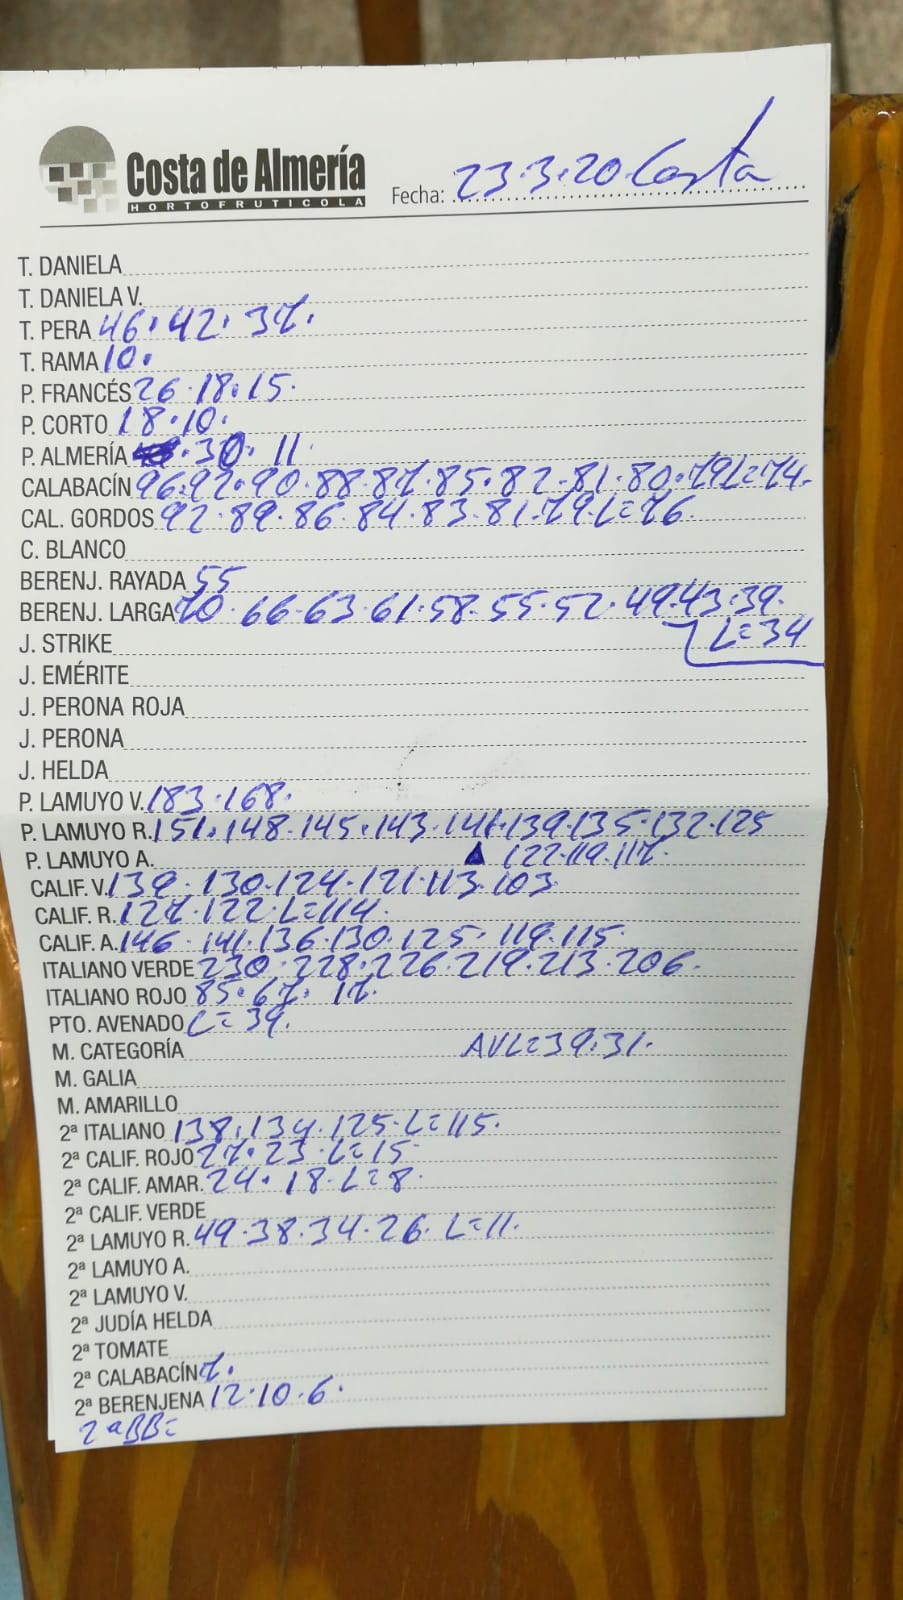 Costa de Almería
HORTOFRUTICOLA
Fecha: 23.3.20 Costa
T. DANIELA
T. DANIELA V.
T. PERA 46. 42. 37.
T. RAMA 10.
P. FRANCÉS 26.18.15.
P. CORTO 18.10.
P. ALMERÍA .30. 11.
CALABACÍN 96.92.90.88.87.85.82.81.80.79 L=74.
CAL. GORDOS 92.89.86.84.83.81.79.L=76.
C. BLANCO
BERENJ. RAYADA 55
BERENJ. LARGA 70.66.63.61.58.55.52.49.43.39.
J. STRIKE L=34
J. EMÉRITE
J. PERONA ROJA
J. PERONA
J. HELDA
P. LAMUYO V. 183.168.
P. LAMUYO R. 151.148.145.143.141.139.135.132.125
P. LAMUYO A. 122.119.117.
CALIF. V. 139.130.124.121.113.103
CALIF. R. 127.122.L=114.
CALIF. A. 146.141.136.130.125.119.115.
ITALIANO VERDE 230.228.226.219.213.206.
ITALIANO ROJO 85.67. 17.
PTO. AVENADO L=39.
M. CATEGORÍA AVL=39.31.
M. GALIA
M. AMARILLO
2ª ITALIANO 138.134.125.L=115.
2ª CALIF. ROJO 27.23.L=15
2ª CALIF. AMAR. 24.18.L=8.
2ª CALIF. VERDE
2ª LAMUYO R. 49.38.34.26.L=11.
2ª LAMUYO A.
2ª LAMUYO V.
2ª JUDÍA HELDA
2ª TOMATE
2ª CALABACÍN 7.
2ª BERENJENA 12.10.6.
2ªBB=